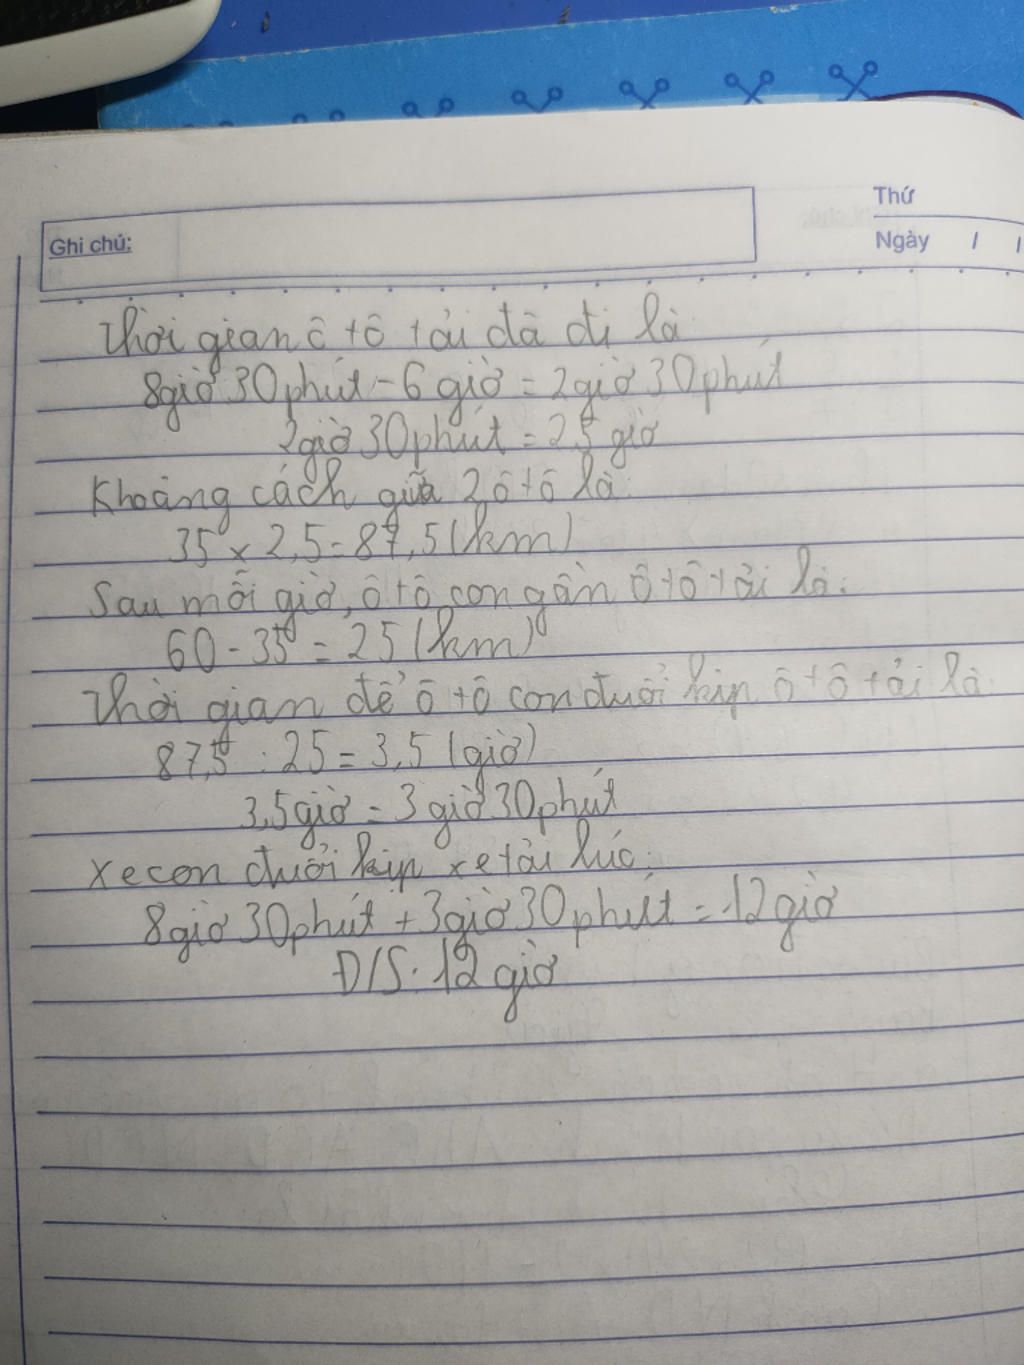 Thứ
Ghi chú:
Ngày / /
Thời gian ô tô tải đã đi là
8giờ 30phút - 6 giờ = 2giờ 30phút
2giờ 30phút = 2,5 giờ
Khoảng cách giữa 2 ô tô là:
35 x 2,5 = 87,5 (km)
Sau mỗi giờ, ô tô con gần ô tô tải là:
60 - 35 = 25 (km)
Thời gian để ô tô con đuổi kịp ô tô tải là
87,5 : 25 = 3,5 (giờ)
3,5giờ = 3 giờ 30phút
Xe con đuổi kịp xe tải lúc:
8giờ 30phút + 3giờ 30phút = 12 giờ
Đ/S: 12 giờ